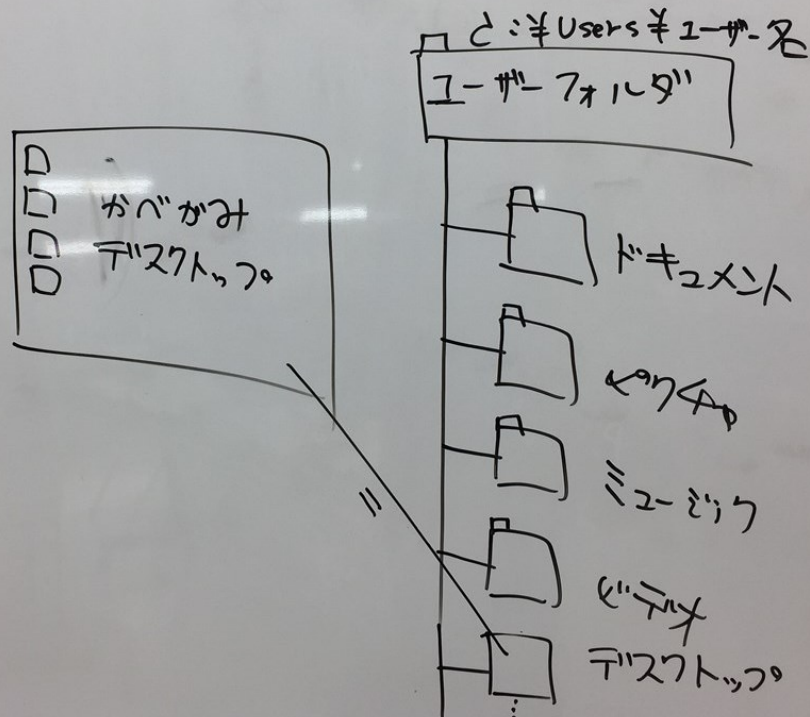 C:¥Users¥ユーザー名
ユーザーフォルダ
かべがみ
デスクトップ
ドキュメント
ピクチャ
ミュージック
ビデオ
デスクトップ